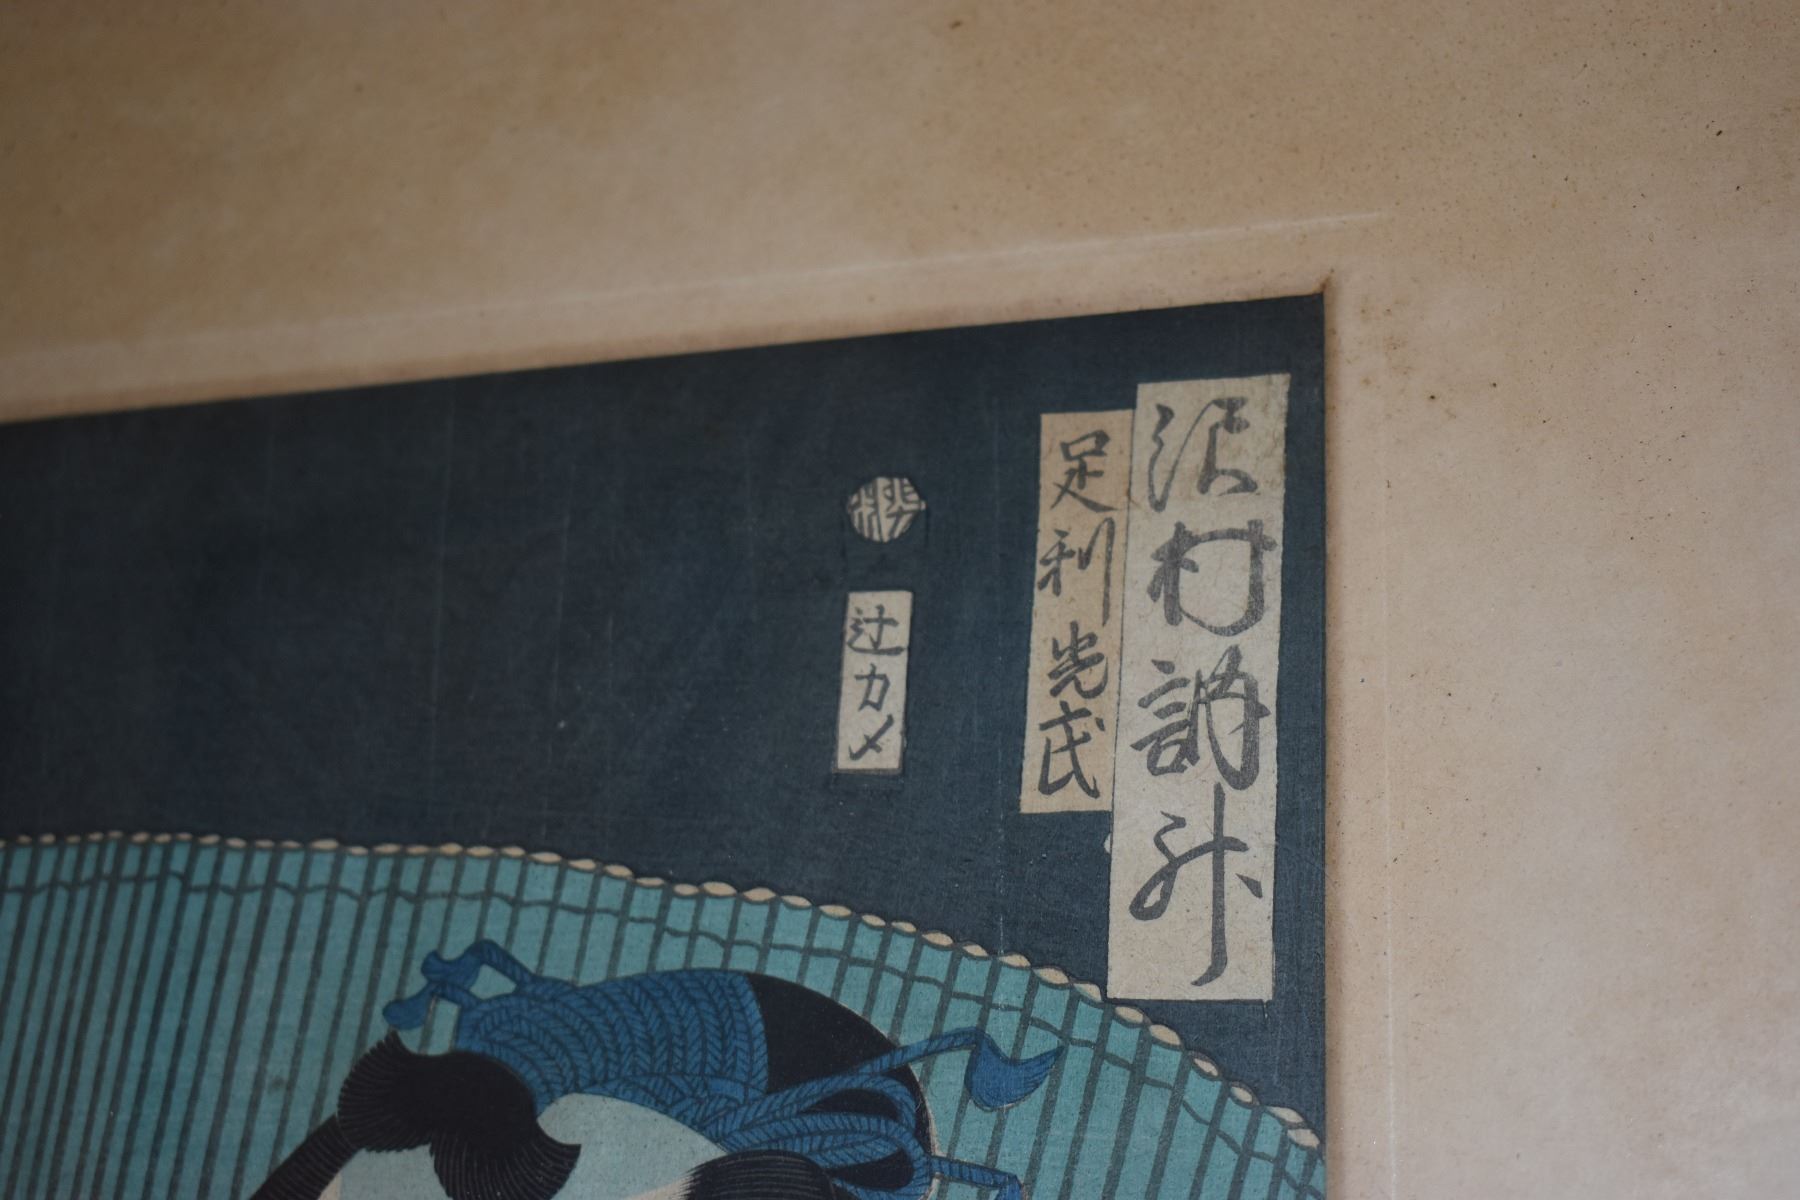 沢村訥升
足利光氏
辻カメ